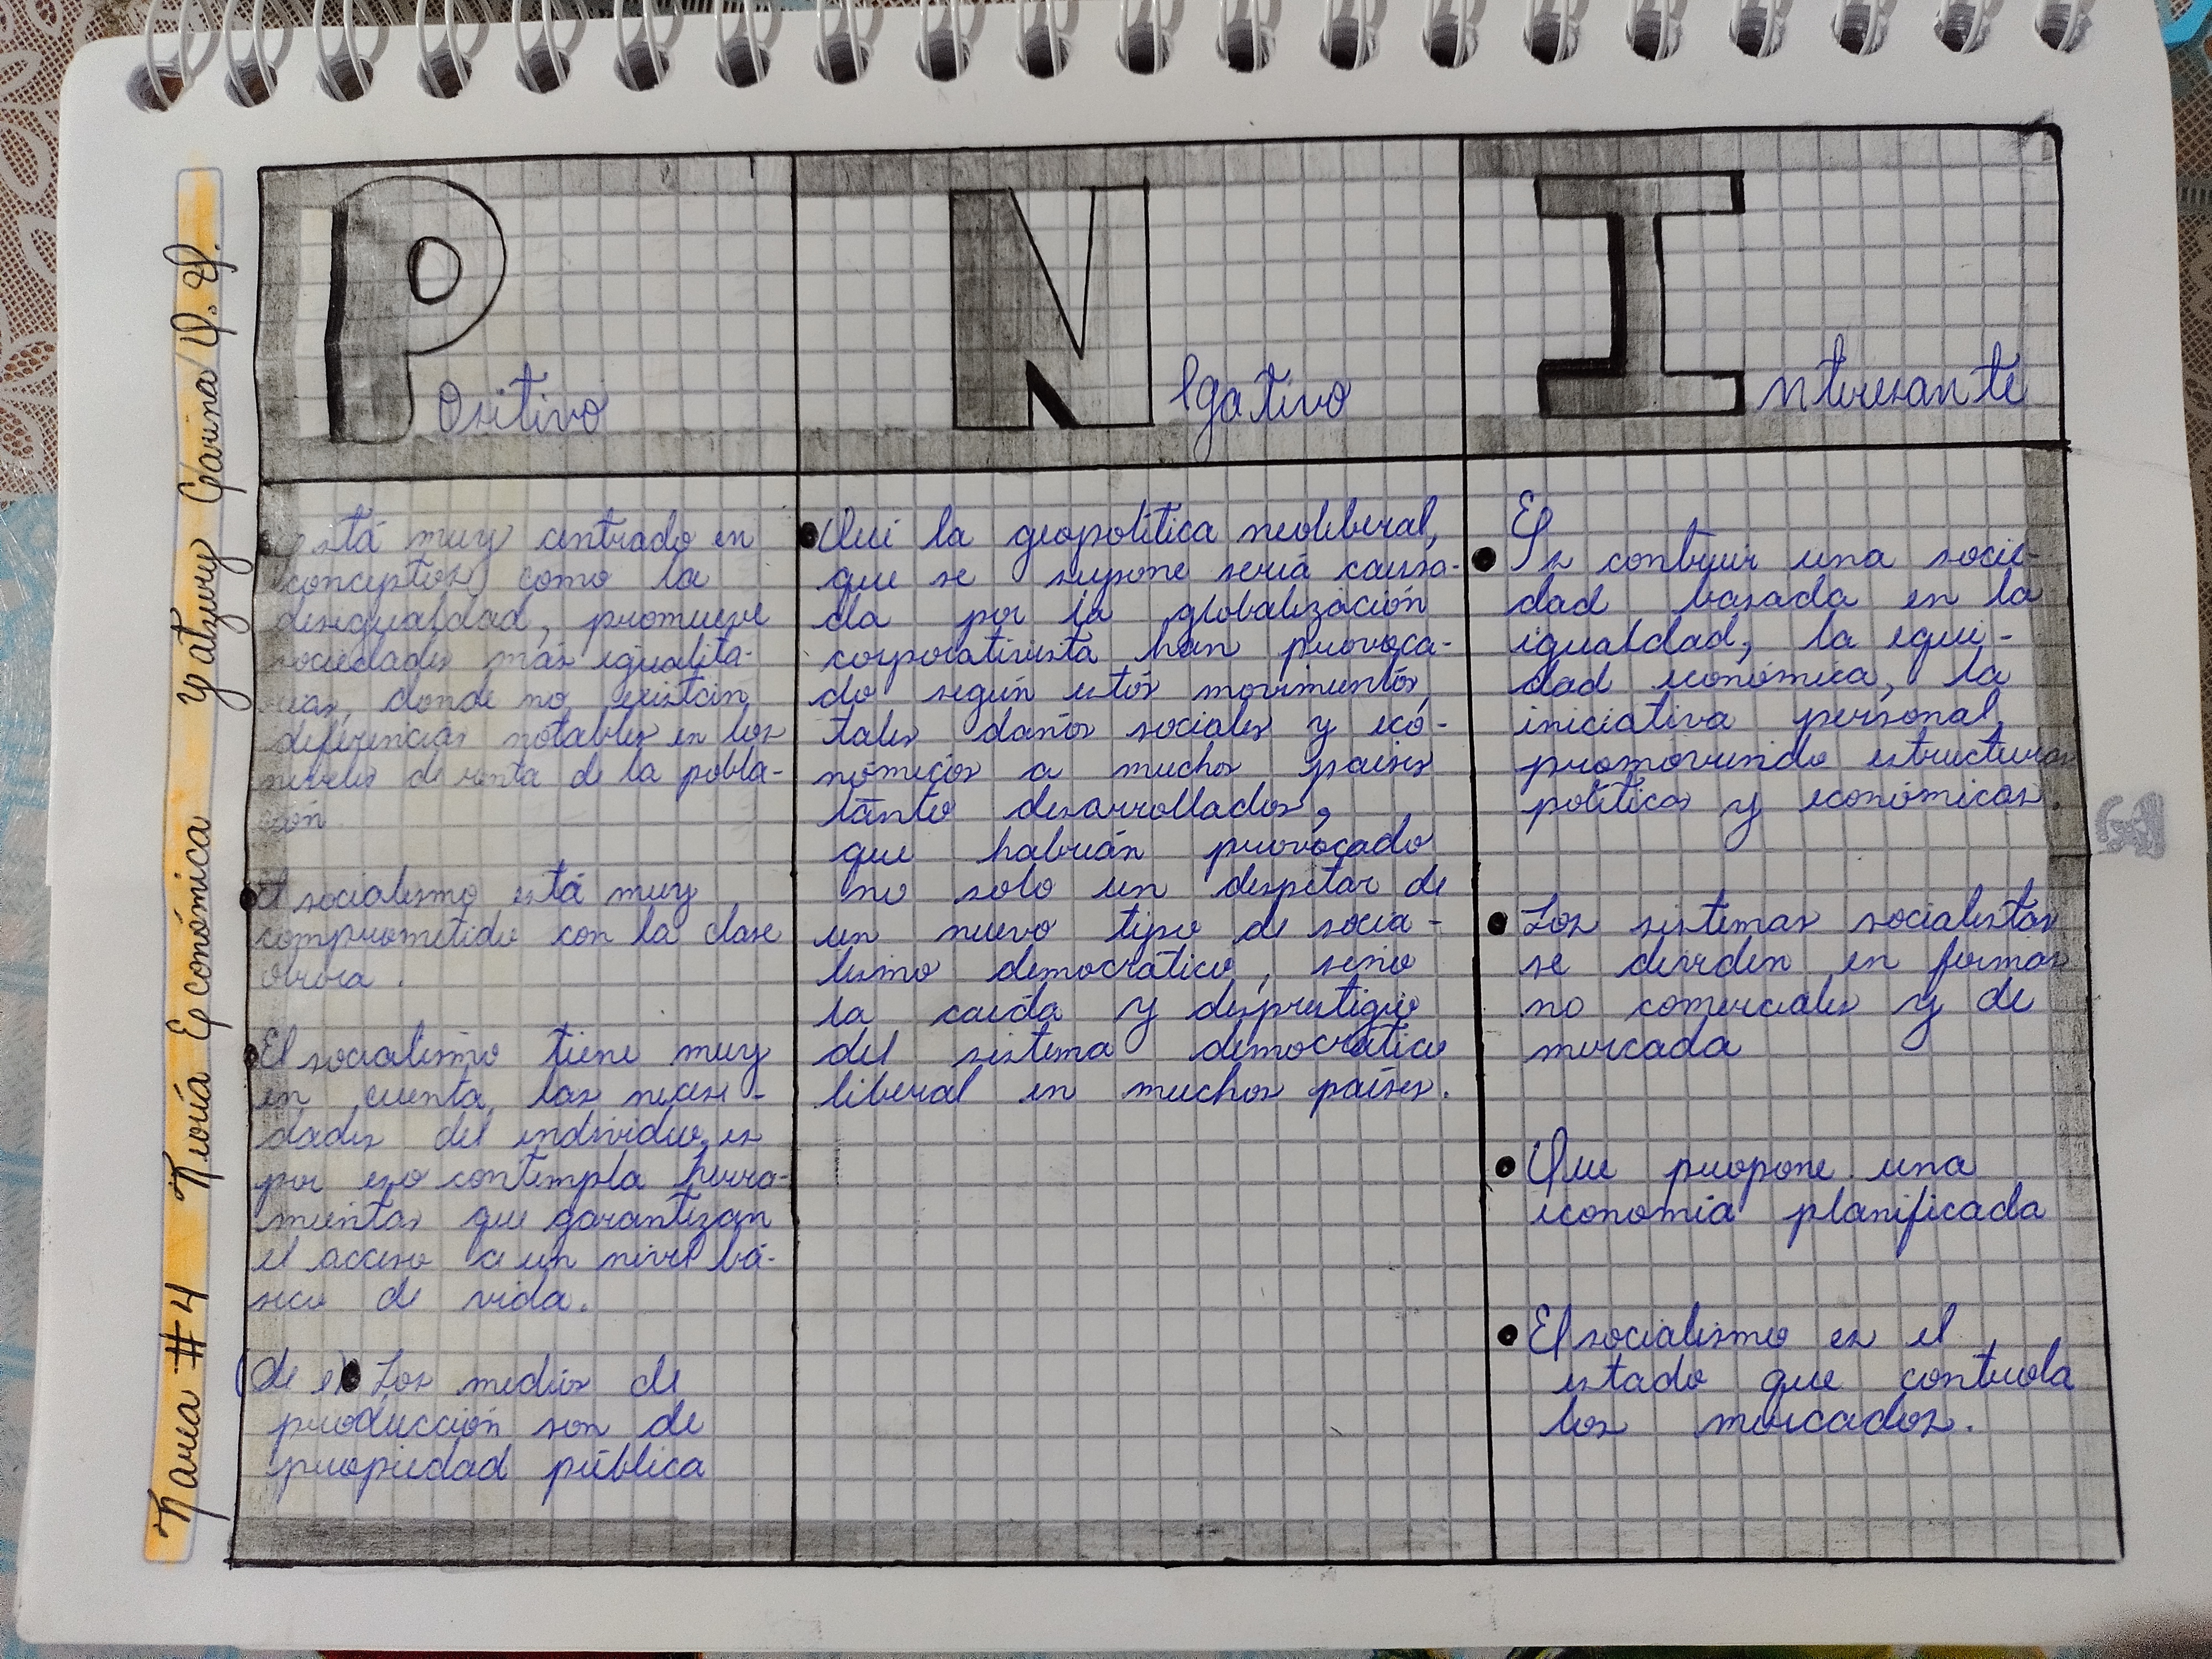 Tarea #4 Teoría Económica Yatzury Garina P. P.
Positivo
está muy centrado en
conceptos como la
desigualdad, promueve
sociedades más igualita-
rias, donde no existan
diferencias notables en los
niveles de renta de la pobla-
ción
El socialismo está muy
comprometido con la clase
obrera.
El socialismo tiene muy
en cuenta las necesi-
dades del individuo, es
por eso contempla herra-
mientas que garantizan
el acceso a un nivel bá-
sico de vida.
(de el) Los medios de
producción son de
propiedad pública
Negativo
Que la geopolítica neoliberal,
que se supone sería causa-
da por la globalización
corporativista han provoca-
do según estos movimientos,
tales daños sociales y eco-
nómicos a muchos países
tanto desarrollados,
que habrían provocado
no solo un despetar de
un nuevo tipo de socia-
lismo democrático, sino
la caída y desprestigio
del sistema democrático
liberal en muchos países.
Interesante
E
Es contruir una socie-
dad basada en la
igualdad, la equi-
dad económica, la
iniciativa personal,
promoviendo estructuras
políticas y económicas.
Los sistemas socialistas
se dividen en formas
no comerciales y de
mercada
Que propone una
economía planificada
El socialismo es el
estado que controla
los mercados.